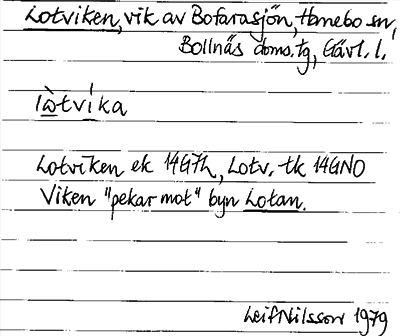 Lotviken, vik av Bofarasjön, Hanebo sn,
Bollnäs doms. tg, Gävl. l.
låtvika
Lotviken ek 14G7h, Lotv. tk 14GNO
Viken "pekar mot" byn Lotan.
Leif Nilsson 1979